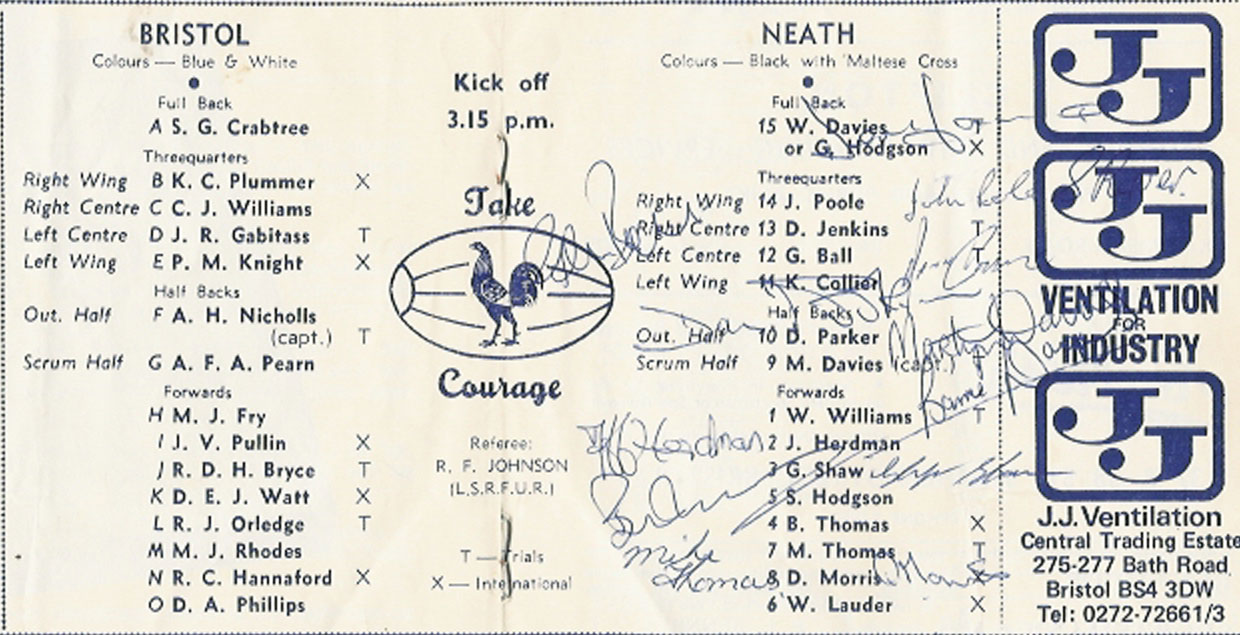 BRISTOL
Colours — Blue & White
Full Back
A S. G. Crabtree
Threequarters
Right Wing B K. C. Plummer X
Right Centre C C. J. Williams
Left Centre D J. R. Gabitass T
Left Wing E P. M. Knight X
Half Backs
Out. Half F A. H. Nicholls
(capt.) T
Scrum Half G A. F. A. Pearn
Forwards
H M. J. Fry
I J. V. Pullin X
J R. D. H. Bryce T
K D. E. J. Watt X
L R. J. Orledge T
M M. J. Rhodes
N R. C. Hannaford X
O D. A. Phillips
Kick off
3.15 p.m.
Take
Courage
Referee:
R. F. JOHNSON
(L.S.R.F.U.R.)
T — Trials
X — International
NEATH
Colours — Black with Maltese Cross
Full Back
15 W. Davies T
or G. Hodgson X
Threequarters
Right Wing 14 J. Poole
Right Centre 13 D. Jenkins T
Left Centre 12 G. Ball T
Left Wing 11 K. Collier
Half Backs
Out. Half 10 D. Parker
Scrum Half 9 M. Davies (capt.)
Forwards
1 W. Williams T
2 J. Herdman
3 G. Shaw
5 S. Hodgson
4 B. Thomas X
7 M. Thomas T
8 D. Morris X
6 W. Lauder X
Herdman
Mike
Thomas
JJ
JJ
VENTILATION
FOR
INDUSTRY
JJ
J.J. Ventilation
Central Trading Estate
275-277 Bath Road
Bristol BS4 3DW
Tel: 0272-72661/3